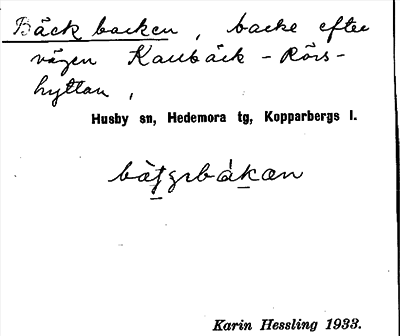 Bäck backen, backe efter
vägen Kallbäck - Rörs-
hyttan,
Husby sn, Hedemora tg, Kopparbergs l.
Karin Hessling 1933.